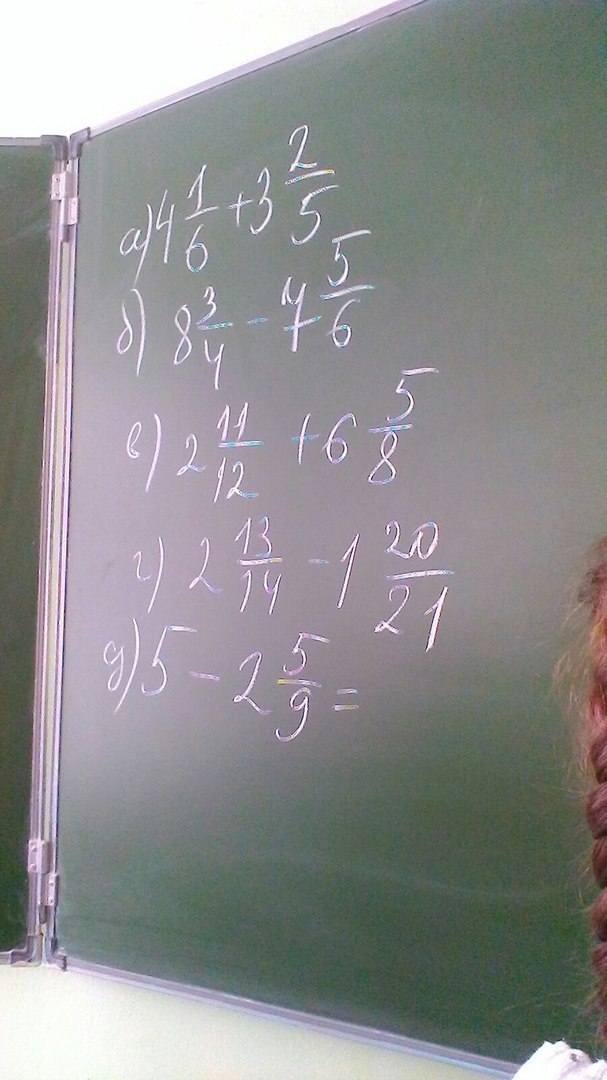 а) 4 1/6 + 3 2/5
б) 8 3/4 - 7 5/6
в) 2 11/12 + 6 5/8
г) 2 13/14 - 1 20/21
д) 5 - 2 5/9 =